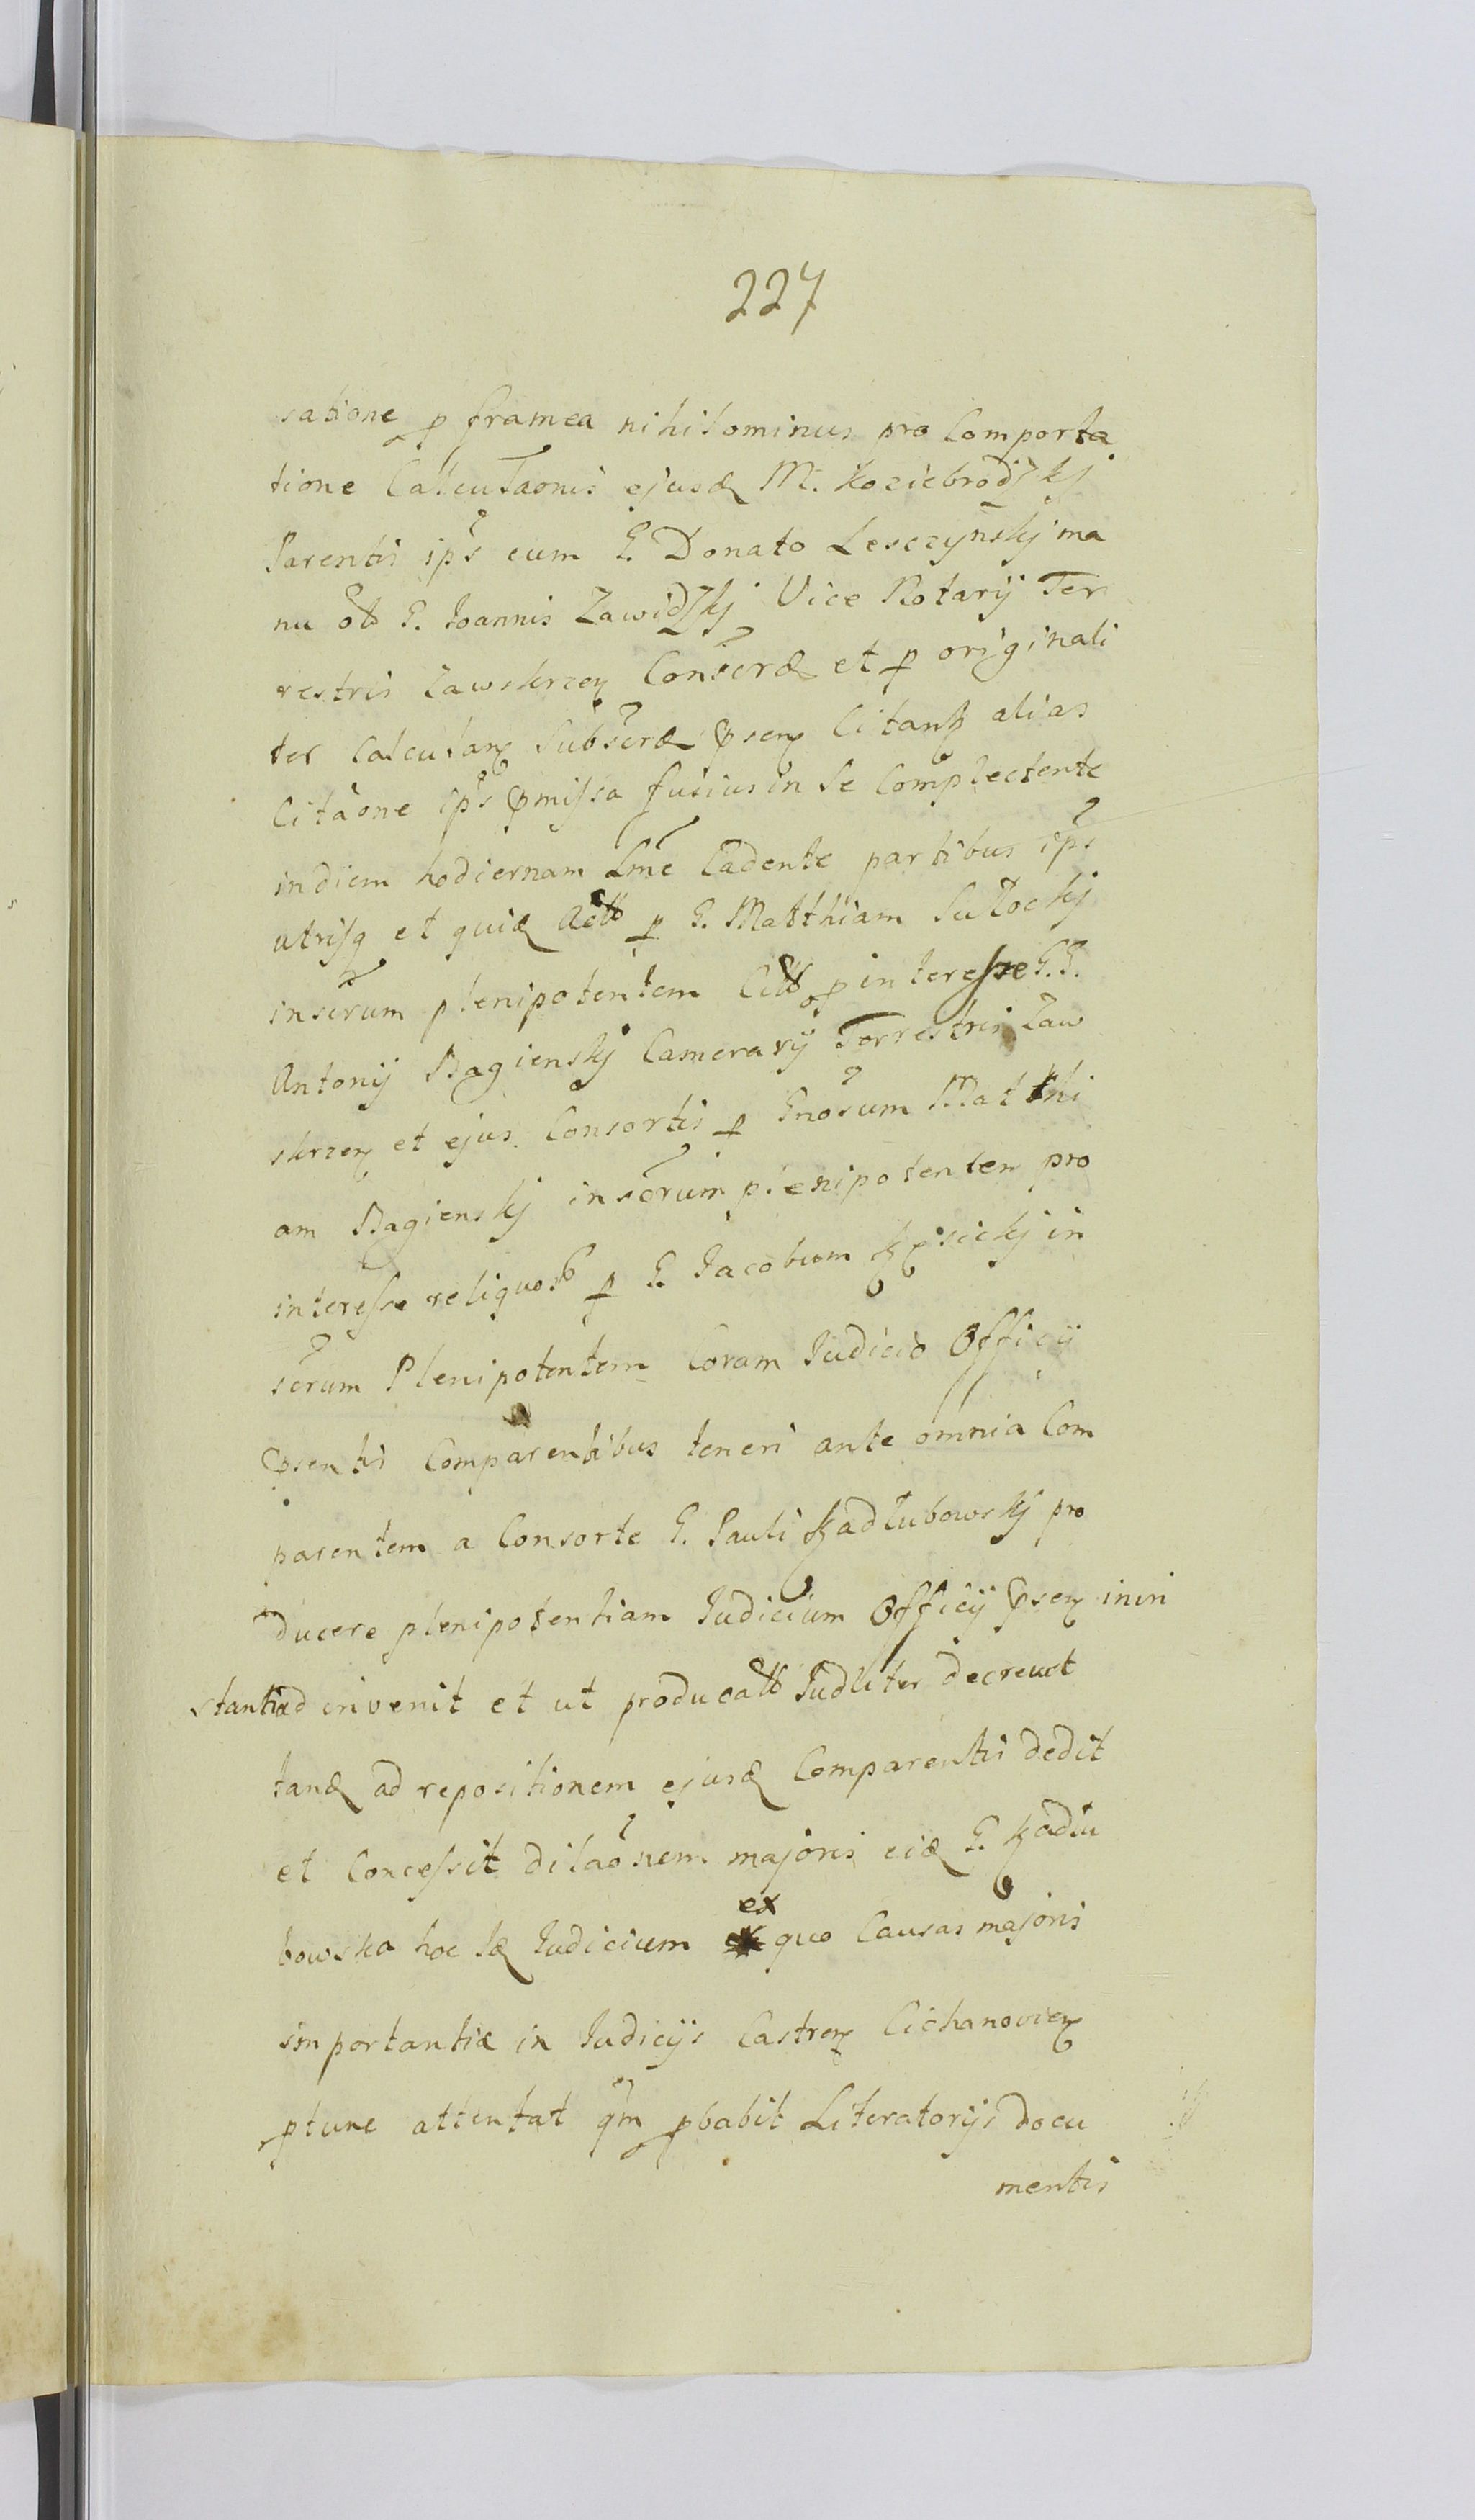 227
satione p framea nihilominus pro Comporta
tione Calculaonis ejusd M. Koziebrodzkj
Parentis ips cum G. Donato Lesczynskj ma
nu ob G. Joannis Zawidzkj Vice Notarij Ter
restris Zawskrzen Conscrd et p originali
ter Calculan Subscrd psen Citan alias
Citaone ips pmissa fusius in Se Complectente
in diem hodiernam Lme Cadente partibus ips
utrisq et quid Actt p G. Matthiam Sulockj
inscrum plenipotentem Citt p interesse G. G.
Antonij Bagienskj Camerarij Terrestris Zaw
skrzen et ejus Consortis p Gnosum Matthi
am Bagienskj inscrum plenipotentem pro
interesse reliquos p G. Jacobum in
scrum Plenipotentem Coram Judicio Officij
psentis Comparentibus teneri ante omnia Com
parentem a Consorte G. Pauli Kadlubowskj pro
ducere plenipotentiam Judicium Officij psen in in
stanti ad invenit et ut producatt Judliter decrevet
tand ad repositionem ejusd Comparentis dedit
et Concessit dilaonem majoris eid G. Kadlu
bowska hoc Id Judicium ex quo Causas majoris
importantiæ in Judicijs Castren Cichanovien
ptunc attentat qm pbabit Literatorijs docu
mentis